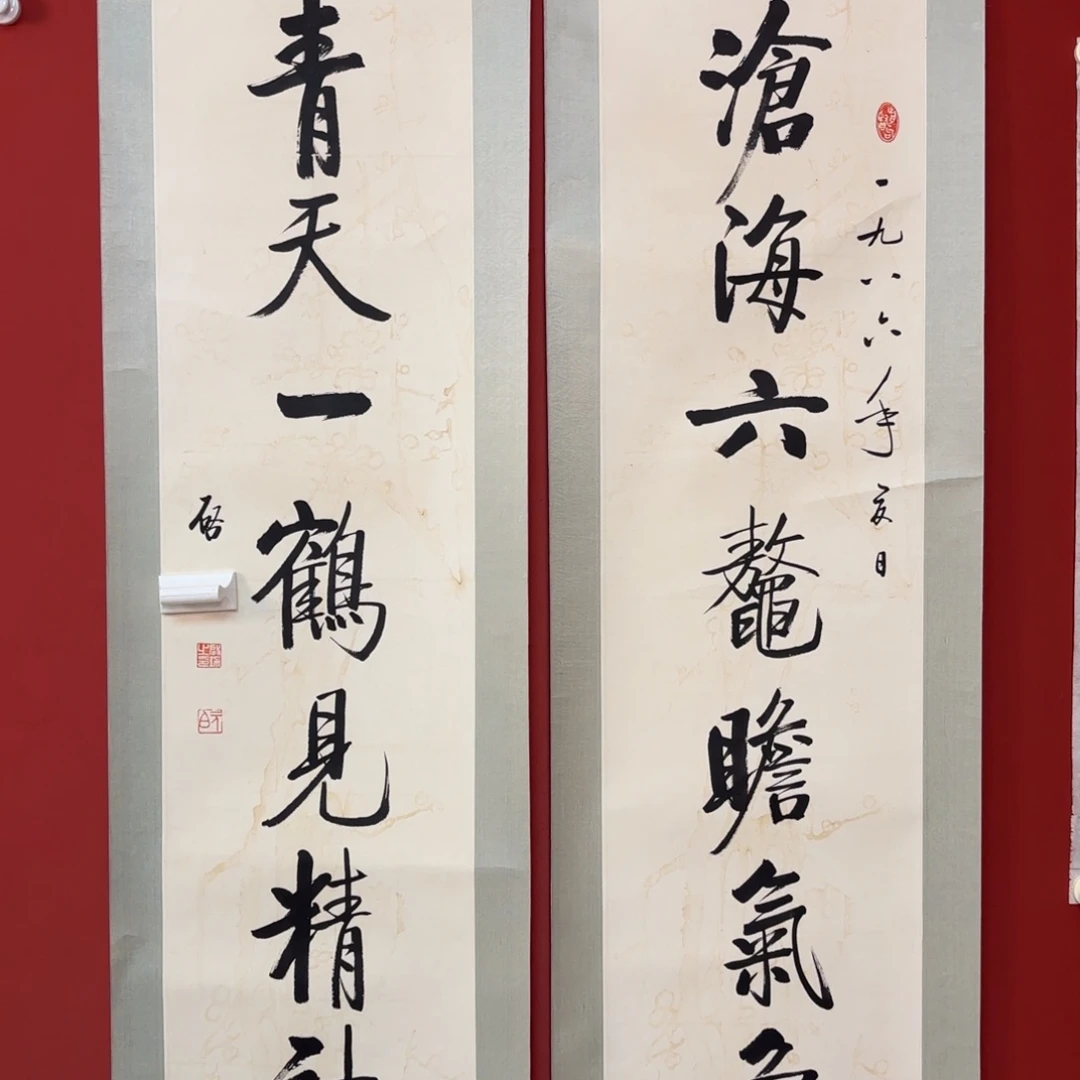 滄海六鼇瞻氣
一九八六年夏日
青天一鶴見精
启